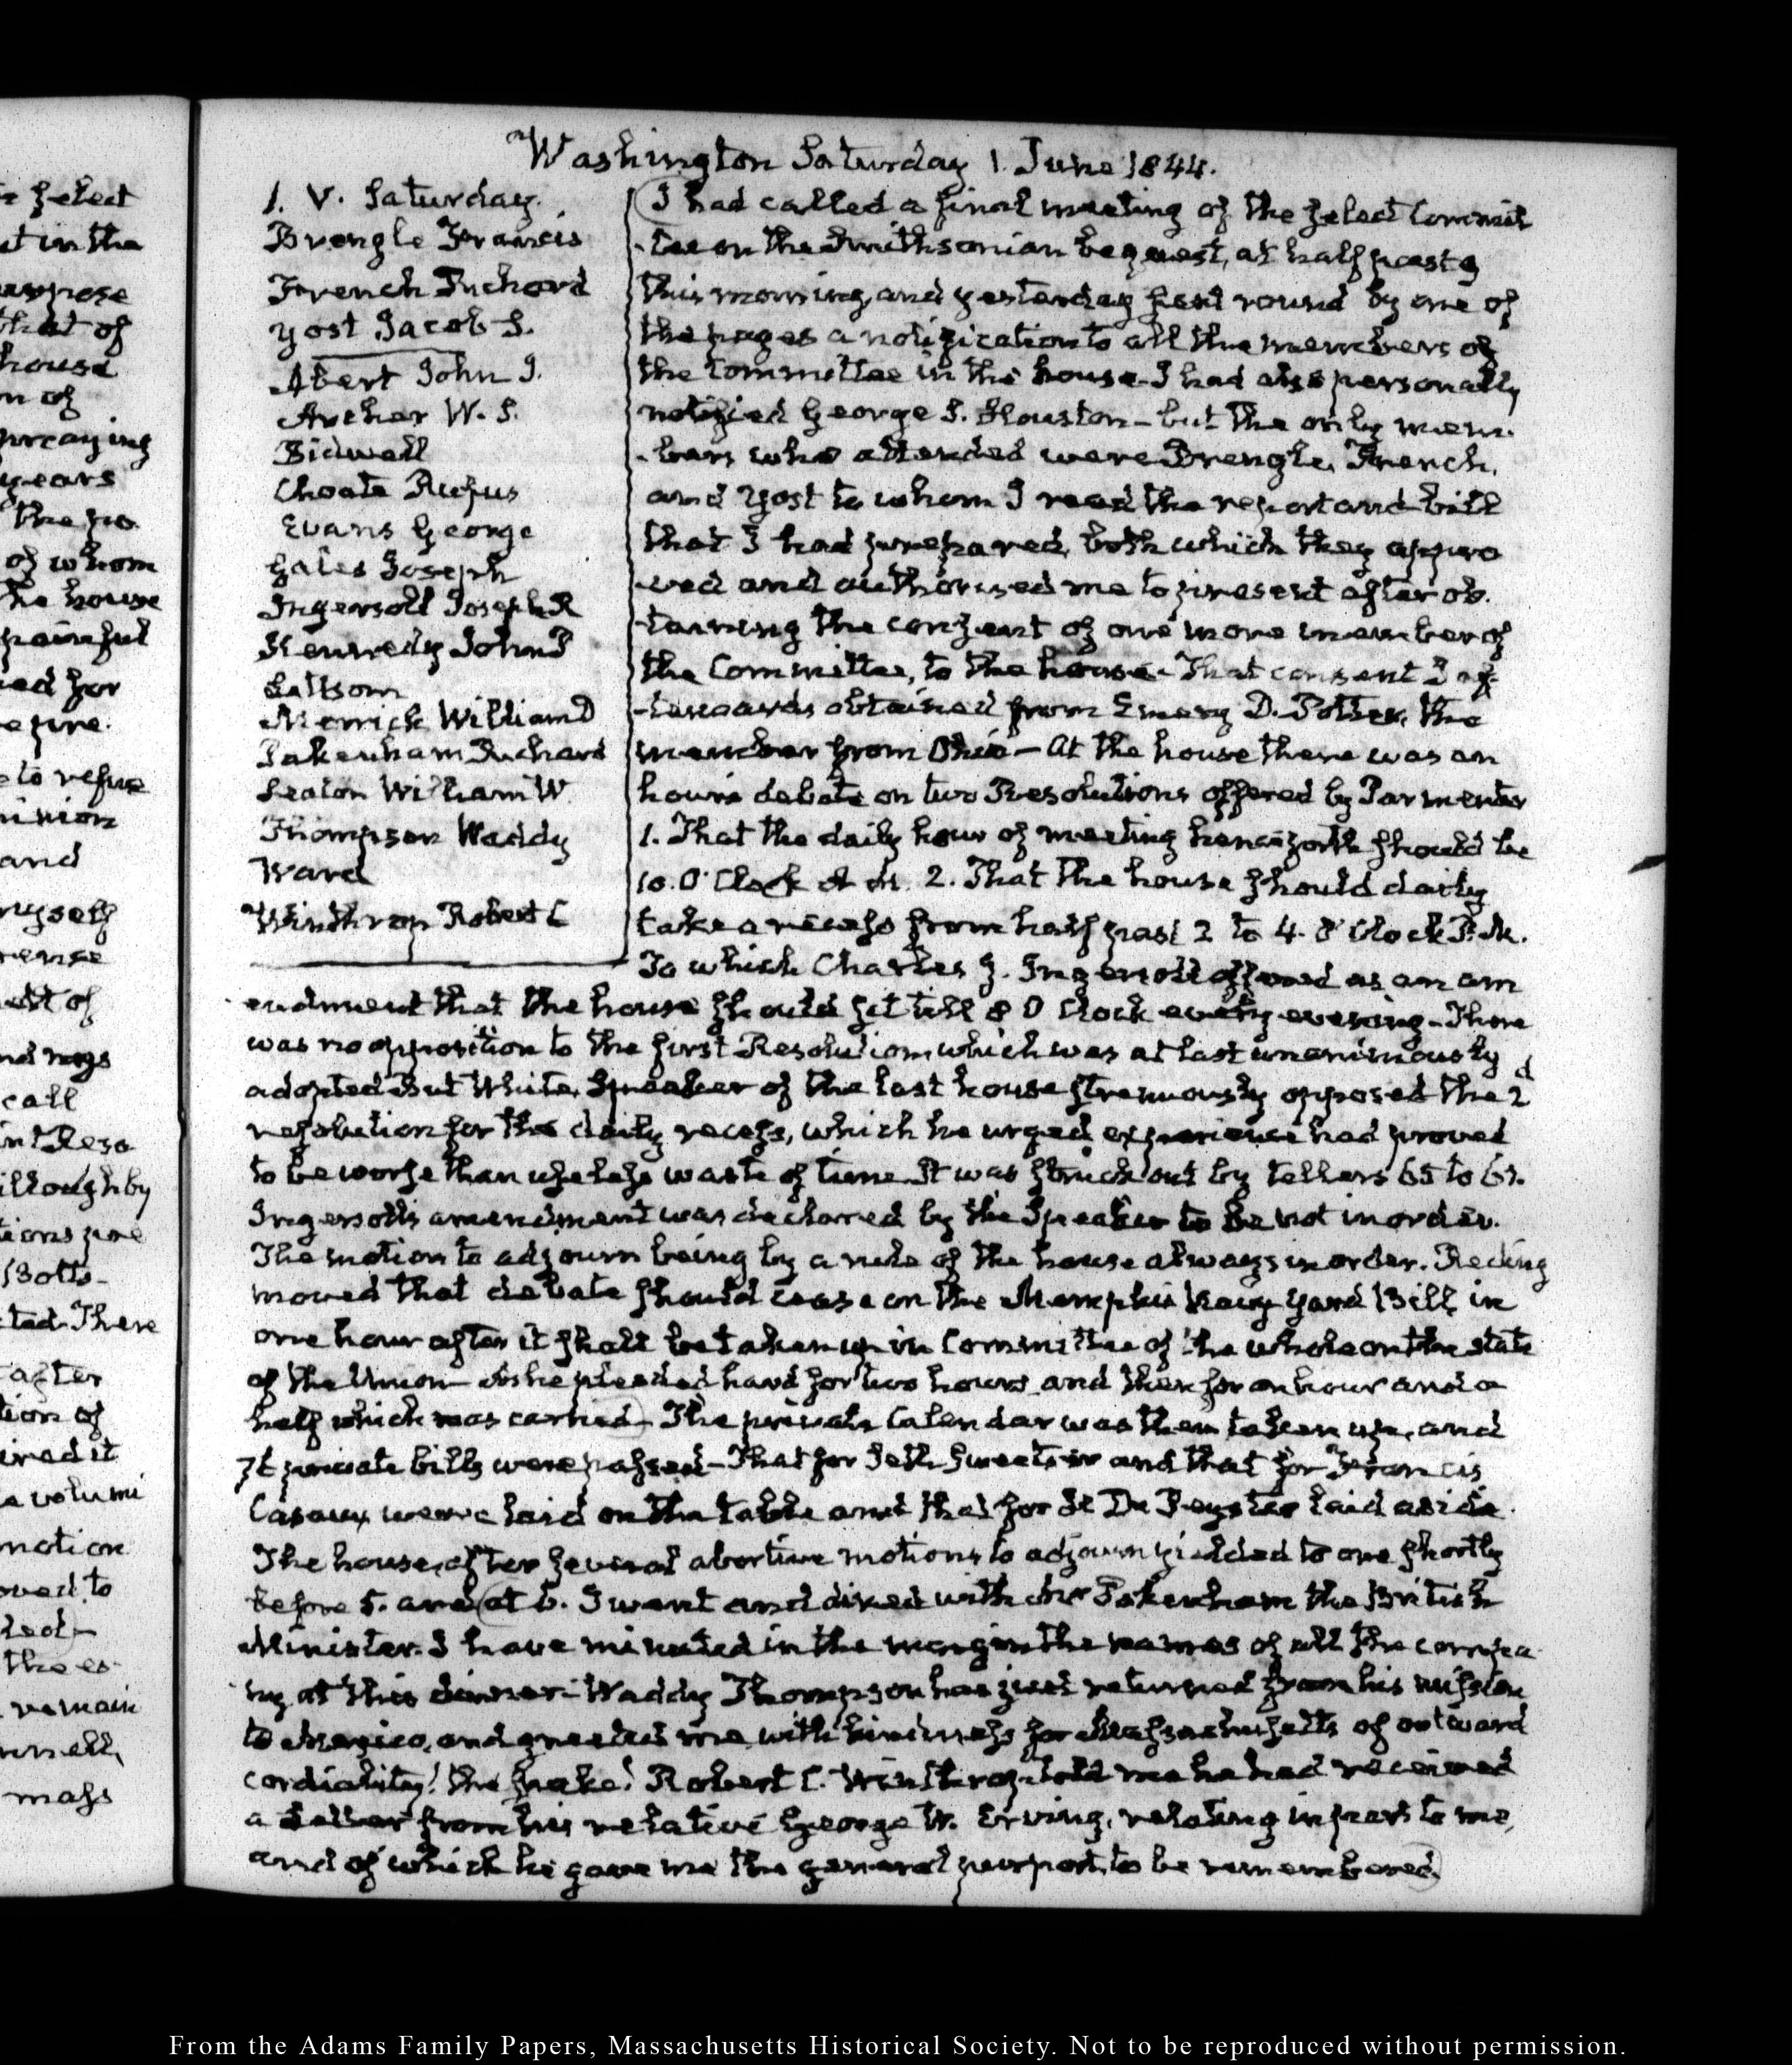 e Select
ut in the
urpose
that of
house
n of
preaying
years
the pro
of whom
the house
painful
ed for
e pre.
e to refuse
inion
and
myself
rense
est of
nd nays
call
int Reso
illoughby
tions pre
Botts-
ted. There
after
tion of
ired it
a volumi
motion
oved to
ded-
the es-
remain
nnell,
mass
Washington Saturday 1. June 1844.
1. V. Saturday.
Brengle Francis
French Richard
Yost Jacob S.
Abert John J.
Archer W. S.
Bidwell
Choate Rufus
Evans George
Gales Joseph
Ingersoll Joseph R
Kennedy John P
Saltsom
Merrick William D
Pakenham Richard
Seaton William W.
Thompson Waddy
Ward
Winthrop Robert C
I had called a final meeting of the Select Commit
-tee on the Smithsonian bequest, at half past 9
this morning, and yesterday sent round by one of
the pages a notification to all the members of
the Committee in the house. I had also personally
notified George S. Houston – but the only mem-
-bers who attended were Brengle, French,
and Yost to whom I read the report and bill
that I had prepared, both which they appro
-ved and authorised me to present after ob-
-taining the consent of one more member of
the Committee, to the house – That consent I af-
-terwards obtained from Emery D. Potter, the
member from Ohio – At the house there was an
hour's debate on two Resolutions offered by Parmenter
1. That the daily hour of meeting henceforth should be
10. O'Clock A.M. 2. That the house should daily
take a recess from half past 2 to 4. O'Clock P.M.
To which Charles J. Ingersoll offered as an am
endment that the house should sit till 8 O Clock every evening – There
was no opposition to the first Resolution which was at last unanimously
adopted But White, Speaker of the last house strenuously opposed the 2d
resolution for the daily recess, which he urged experience had proved
to be worse than useless waste of time. It was struck out by tellers 65 to 61.
Ingersoll's amendment was declared by the Speaker to be not in order.
The motion to adjourn being by a rule of the house always in order. Reding
moved that debate should cease on the Memphis Navy Yard Bill in
one hour after it shall be taken up in Committee of the whole on the state
of the Union – Ashe pleaded hard for two hours and then for an hour and a
half which was carried – The private Calendar was then taken up, and
private bills were passed – That for Seth Sweetser and that for Francis
Casaux were laid on the table and that for De Peyster laid aside.
The house, after several abortive motions to adjourn yielded to one shortly
before 5. and at 6. I went and dined with Mr Pakenham the British
Minister. I have minuted in the margin the names of all the compa-
ny at this dinner – Waddy Thompson has just returned from his mission
to Mexico, and greeted me with kindness for Massachusetts of outward
cordiality! the snake! Robert C. Winthrop told me he had received
a letter from his relative George W. Erving, relating in part to me,
and of which he gave me the general purport, to be remembered.
From the Adams Family Papers, Massachusetts Historical Society. Not to be reproduced without permission.